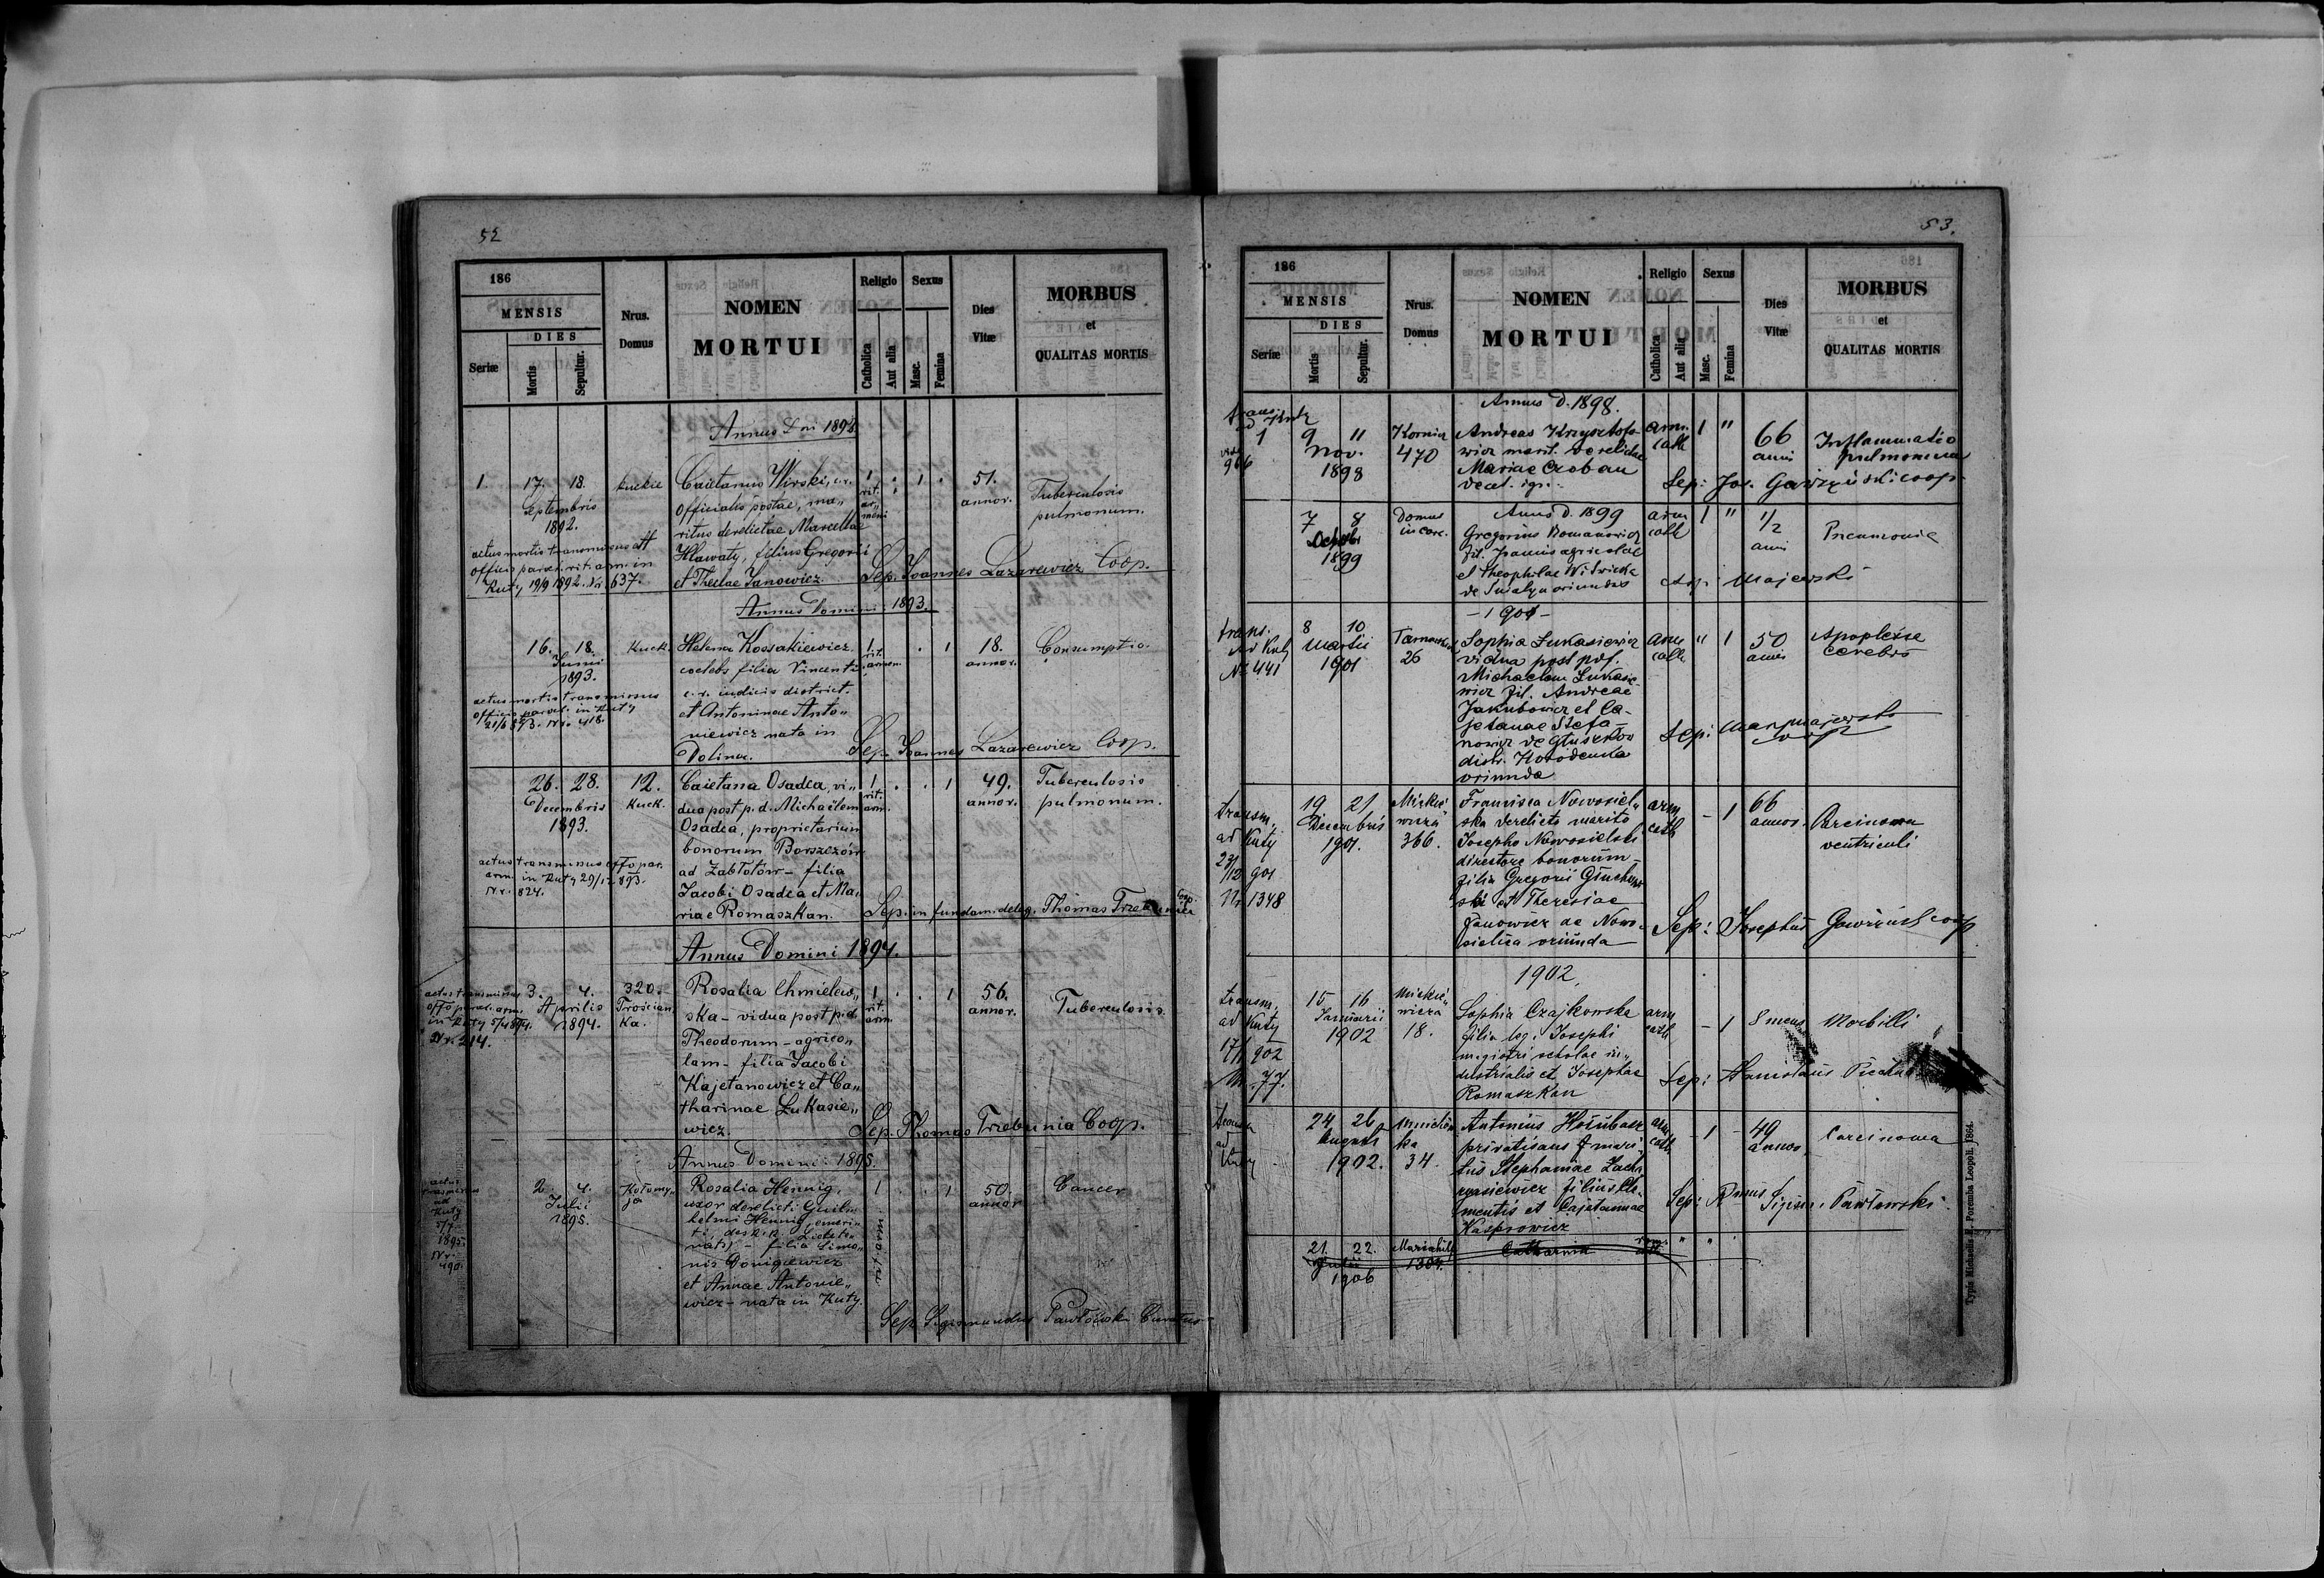 52
186
MENSIS
DIES
Seriæ
Mortis
Sepultur.
Nrus.
Domus
NOMEN
MORTUI
Religio
Catholica
Aut alia
Sexus
Masc.
Femina
Dies
Vitæ
MORBUS
et
QUALITAS MORTIS
Annus Dni 1892.
1. 17. 18. kuckie Caietanus Wirski, c.r. 1 . 1 . 51. Tuberculosis
Septembris officialis postae, ma„ rit. annor. pulmonum.
1892. ritus derelictae Marcellae ar„ meni
actus mortis transmissus
officio paroch. rit. arm. in
Kuty 19/9 1892. Nr. 637.
Hlawaty, filius Gregorii
et Theclae Janowicz. Sep. Joannes Lazarewicz Coop.
Annus Domini 1893.
16. 18. Kuck. Helena Kossakiewicz 1. . . 1 18. Consumptio.
Junii coelebs filia Vincentii rit. armen. annor.
1893. c.r. iudicis district.
actus mortis transmissus
officio paroch. in Kuty
21/6 893. Nro. 418.
et Antoninae Anto„
niewicz nata in
Dolina. Sep. Joannes Lazarewicz Coop.
26. 28. 12. Caietana Osadca, vi„ 1. . . 1 49. Tuberculosis
Decembris Kuck. dua post p.d. Michaëlem rit. arm. annor. pulmonum.
1893. Osadca, proprietarium
bonorum Borszczów
actus transmissus offo par.
arm. in Kuty 29/12 893.
Nr. 824.
ad Zabłotów – filia
Jacobi Osadca et Ma„
riae Romaszkan. Sep. in fundam. deleg. Thomas Trzebunia Coop.
Annus Domini 1894.
actus transmissus
offo paroch. arm.
in Kuty 5/4 894.
Nr. 214.
3. 4. 320. Rosalia Chmielew„ 1. . . 1 56. Tuberculosis.
Aprilis Trościan„ ska – vidua post p.d. rit. arm. annor.
1894. ka. Theodorum – agrico„
lam – filia Jacobi
Kajetanowicz et Ca„
tharinae Łukasie„
wicz. Sep. Thomas Trzebunia Coop.
Annus Domini 1895.
actus
transmissus
ad
Kuty
5/7
1895.
Nr.
490.
2. 4. Kołomy„ Rosalia Hennig, 1 . . 1 50. Cancer
Julii ja uxor derelicti Guil„ rit. arm. annor.
1895. helmi Hennig, emeri„
nis Donigiewicz
et Annae Antonie„
wicz – nata in Kuty.
Sep. Sigismundus Pawłowski Curatus
53.
186
MENSIS
DIES
Seriæ
Mortis
Sepultur.
Nrus.
Domus
NOMEN
MORTUI
Religio
Catholica
Aut alia
Sexus
Masc.
Femina
Dies
Vitæ
MORBUS
et
QUALITAS MORTIS
Annus D. 1898.
1 9 11 Kornia Andreas Krzysztofo- arm. 1 " 66 Inflammatio
966 Nov. 470 wicz marit. derelictae cath annis pulmonum
1898 Mariae Czoban
Sep: Jos. Gawizński coop
Annus D. 1899
7 8 Domus Gregorius Romanowicz arm 1 " 1/2 Pneumonia
Octobr. in carc. fil. Joannis agricolae cath anni
1899 et Theophilae Witwicka
oriundus Sep: Majewski
– 1901 –
trans. 8 10 Sophia Łukasiewicz arm " 1 50 Apoplexia
ad Kuty Martii 26 vidua post pdf. cath annis cerebri
Nr 441 1901 Michaelem Łukasie-
wicz fil. Andreae
Jakubowicz et Ca-
jetanae Stefa-
nowicz de Głuszków
distr. Horodenka
oriunda
Sep: Mar. Majewski coop
transm. 19 21 Mickie„ Francisca Nowosiel„ arm – 1 66 Carcinoma
ad Kuty Decembris wicza ska derelicto marito cath annos. ventriculi
23/12 901 1901. 366. Josepho Nowosielski
Nr 1348 directore bonorum –
filia Gregorii
ski et Theresiae
Janowicz de Nowo-
sielica oriunda Sep: Josephus Gawiziński coop
1902.
transm. 15 16 Mickie„ Sophia Czajkowska arm – 1 8 mens Morbilli
ad Kuty Januarii wicza filia leg. Josephi cath
17/1 902 1902 18. magistri scholae in„
Nr. 77. dustrialis et Josephae
Romaszkan Sep: Stanislaus
transm 24 26 Antonius arm – 1 49 Carcinoma
ad Augusti ka privatisans mari„ cath annos.
Kuty 1902. 34. tus Stephaniae Zacha
ryasiewicz filius Cle„
mentis et Cajetannae
Kasprowicz
Sep: Rmus Sigism. Pawłowski
21. 22. Mariahilf Catharina rom. " "
Julii 1304.
1906
Typis Michaelis F. Poremba Leopoli. 1864.